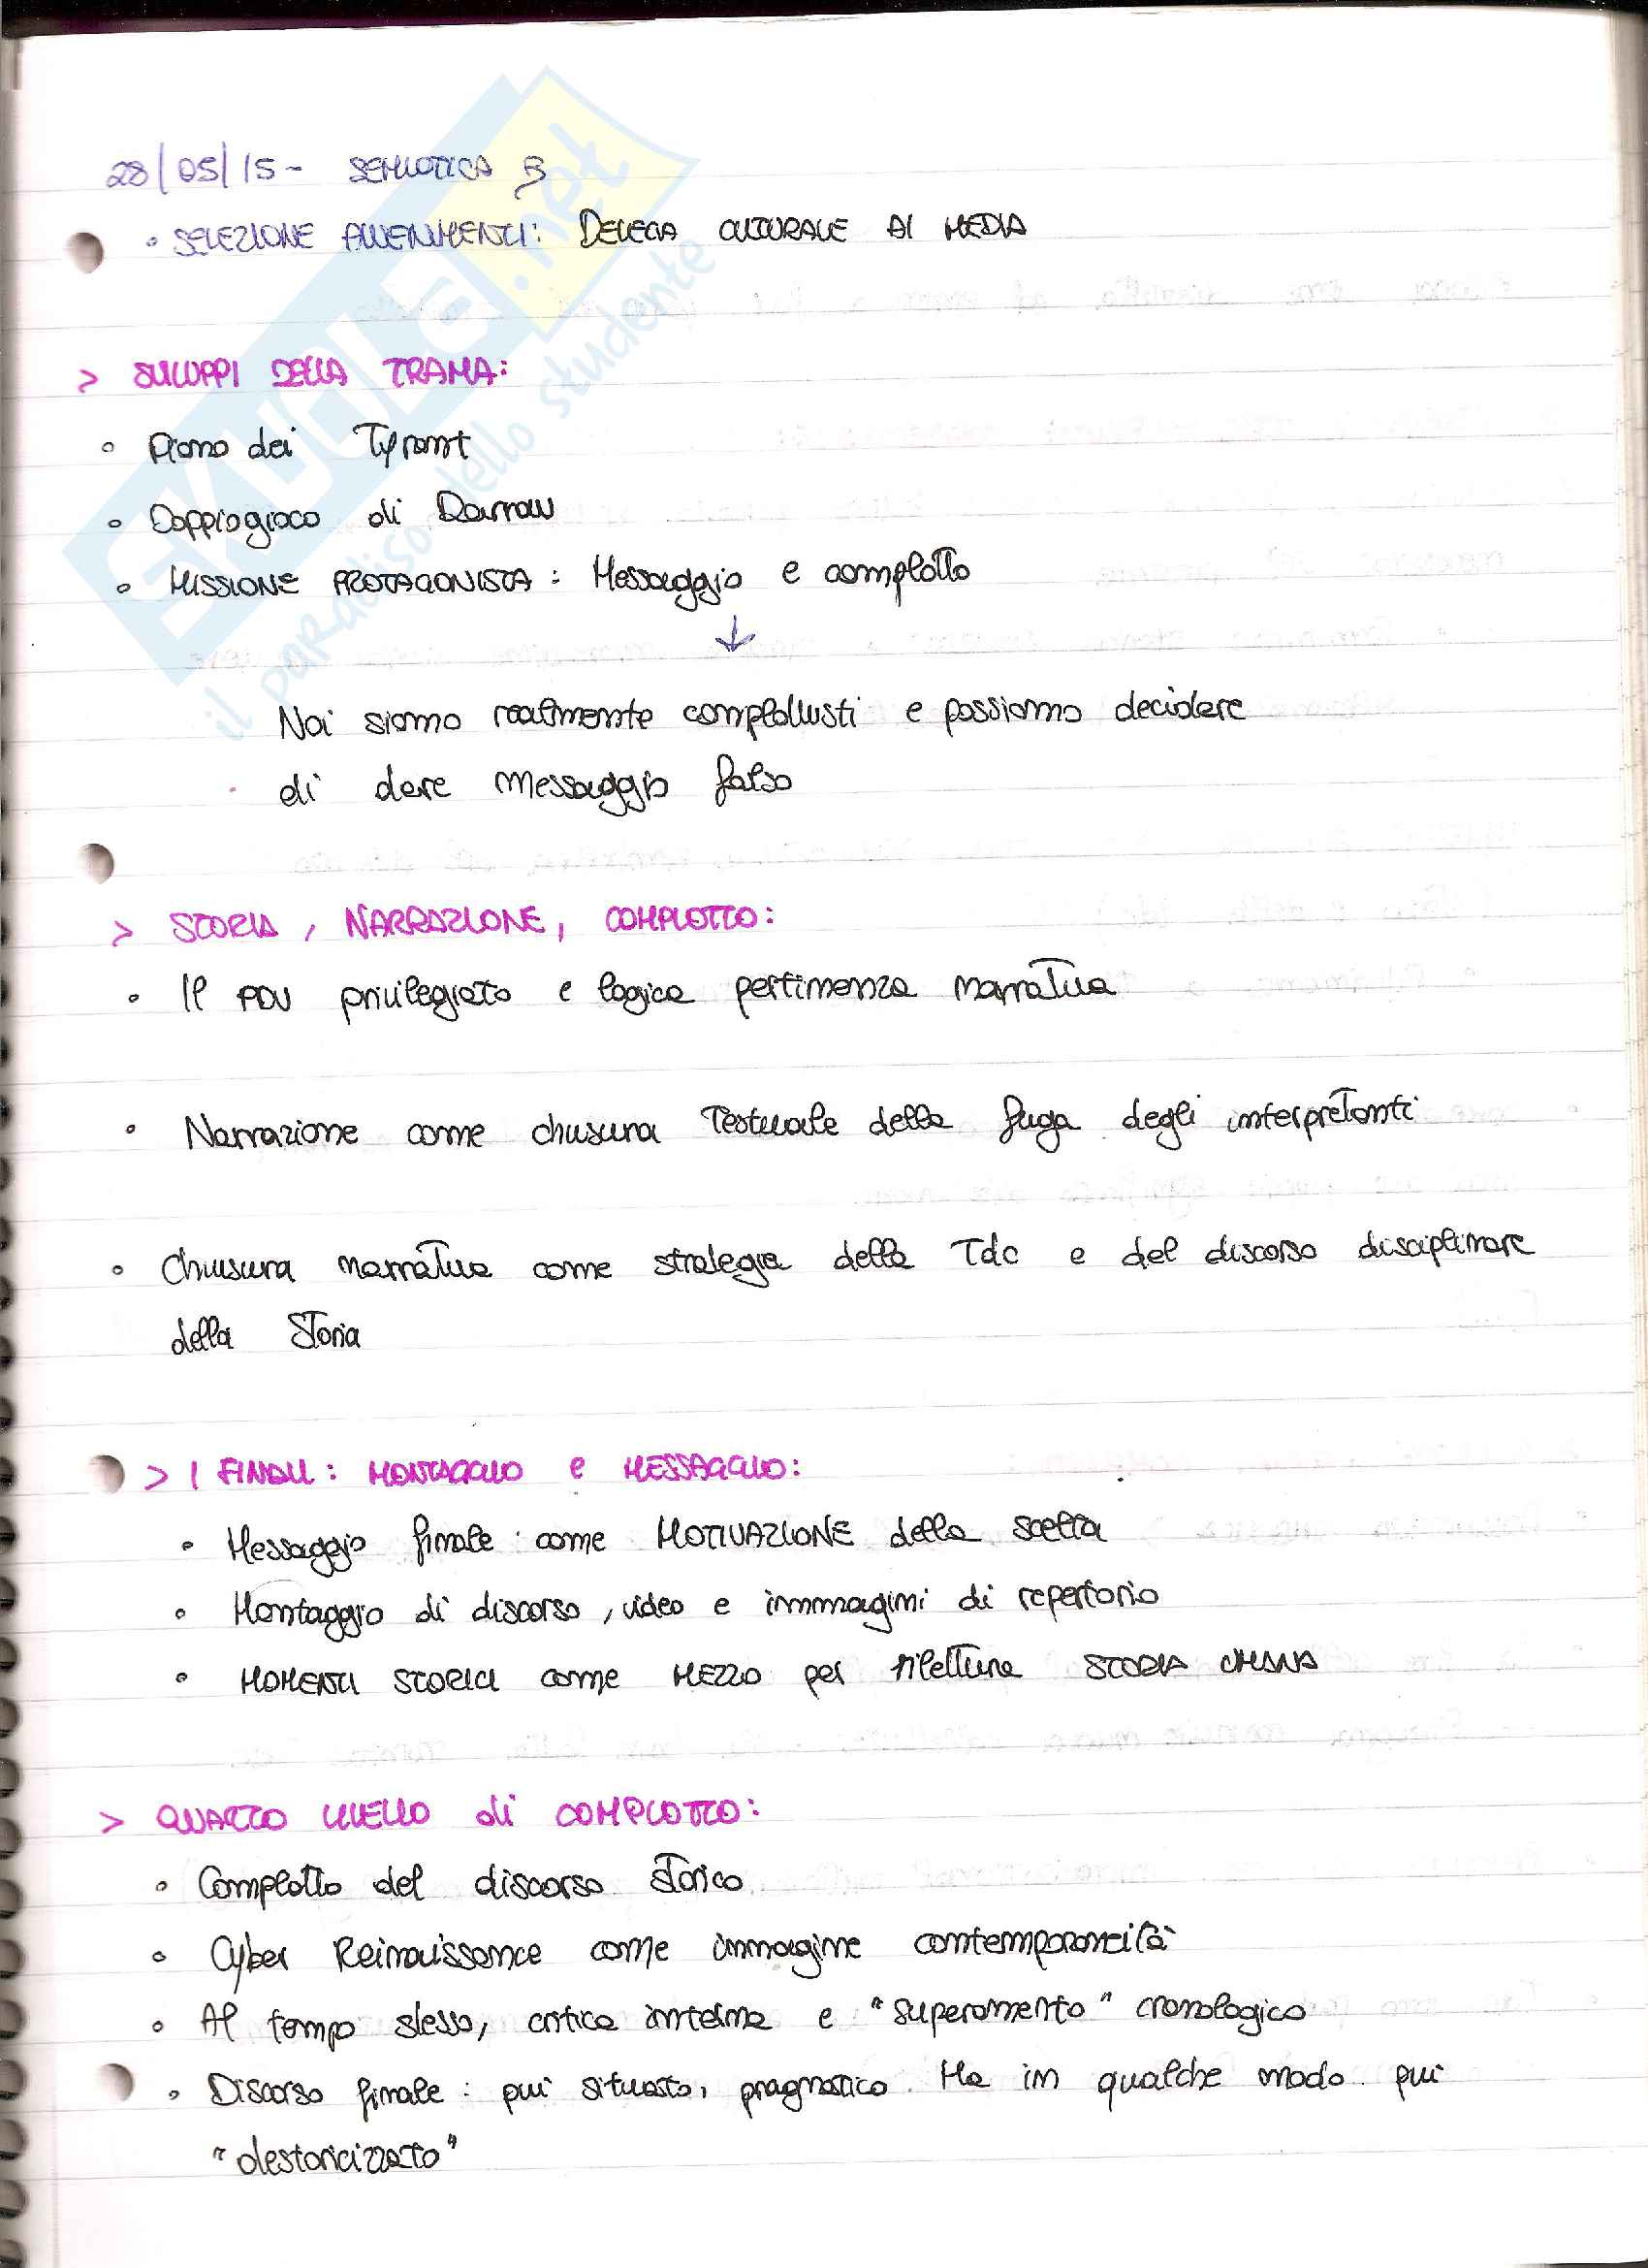 28/05/15 - SEMIOTICA B
• SELEZIONE AVVENIMENTI: DELEGA CULTURALE AI MEDIA
> SVILUPPI DELLA TRAMA:
• Piano dei Tyrant
• Doppiogioco di Darrow
• MISSIONE PROTAGONISTA: Messaggio e complotto
↓
Noi siamo realmente complottisti e possiamo decidere
di dare messaggio falso
> STORIA, NARRAZIONE, COMPLOTTO:
• Il PDV privilegiato e logica pertinenza narrativa
• Narrazione come chiusura testuale della fuga degli interpretanti
• Chiusura narrativa come strategia della Tdc e del discorso disciplinare
della Storia
> I FINALI: MONTAGGIO e MESSAGGIO:
• Messaggio finale come MOTIVAZIONE della scelta
• Montaggio di discorso, video e immagini di repertorio
• MOMENTI STORICI come MEZZO per rilettura STORIA UMANA
> QUARTO LIVELLO di COMPLOTTO:
• Complotto del discorso storico
• Cyber Reinaissance come immagine contemporaneità
• Al tempo stesso, critica interna e "superamento" cronologico
• Discorso finale: più situato, pragmatico. Ma in qualche modo più
"destoricizzato"
SKUOLA.net
il paradiso dello studente